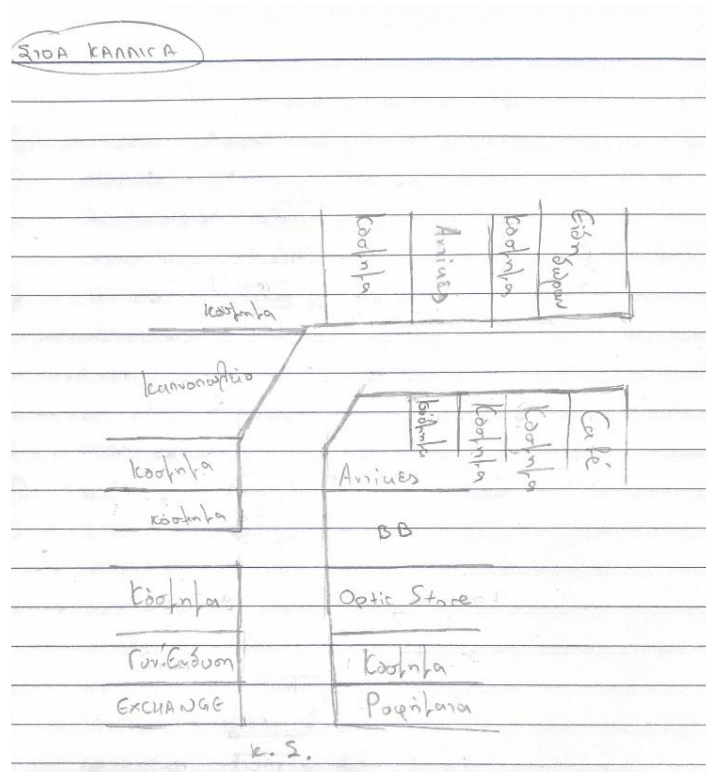 ΣΤΟΑ ΚΑΛΛΙΓΑ
Κόσμημα
Αντίκες
Κόσμημα
Είδη δώρων
Κόσμημα
Καπνοπωλείο
Κόσμημα
Κόσμημα
Κόσμημα
Café
Κόσμημα
Αντίκες
Κόσμημα
BB
Κόσμημα
Optic Store
Γυν. Ένδυση
Κόσμημα
EXCHANGE
Ροφήματα
κ. Σ.